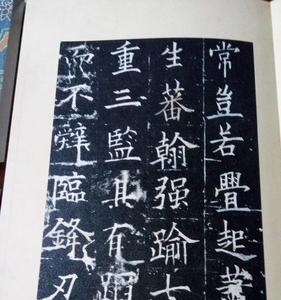 常豈若疊起
生蕃翰强踰
重三監其有蹈
而不辤臨鋒刃